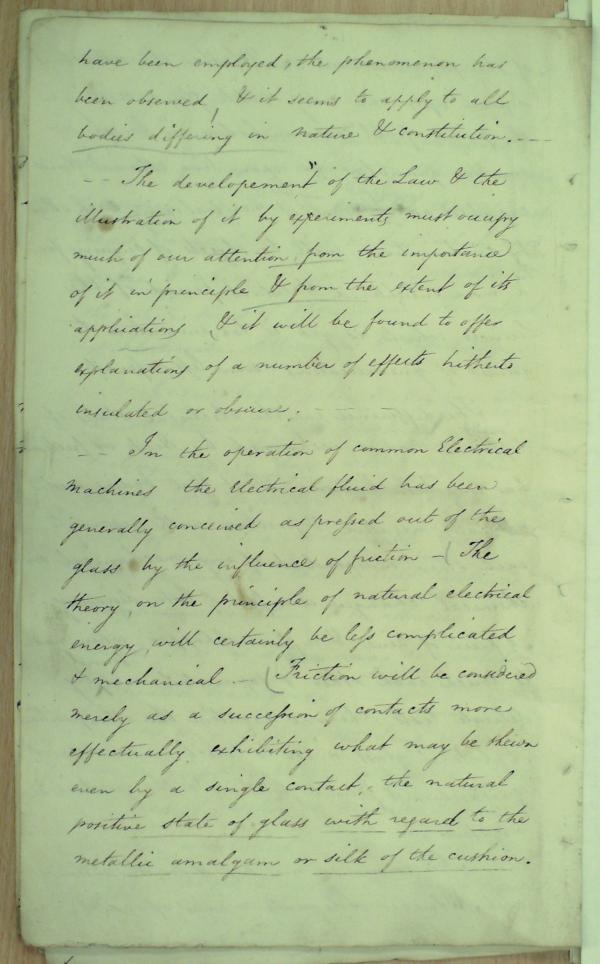 have been employed, the phenomenon has
been observed, & it seems to apply to all
bodies differing in nature & constitution. ——
—— The developement of the Law & the
illustration of it by experiments must occupy
much of our attention from the importance
of it in principle & from the extent of its
applications & it will be found to offer
explanations of a number of effects hitherto
insulated or obscure. — — —
—— In the operation of common Electrical
machines the Electrical fluid has been
generally conceived as pressed out of the
glass by the influence of friction – (The
theory, on the principle of natural electrical
energy, will certainly be less complicated
& mechanical. – (Friction will be considered
merely as a succession of contacts more
effectually exhibiting what may be shewn
even by a single contact, the natural
positive state of glass with regard to the
metallic amalgam or silk of the cushion.